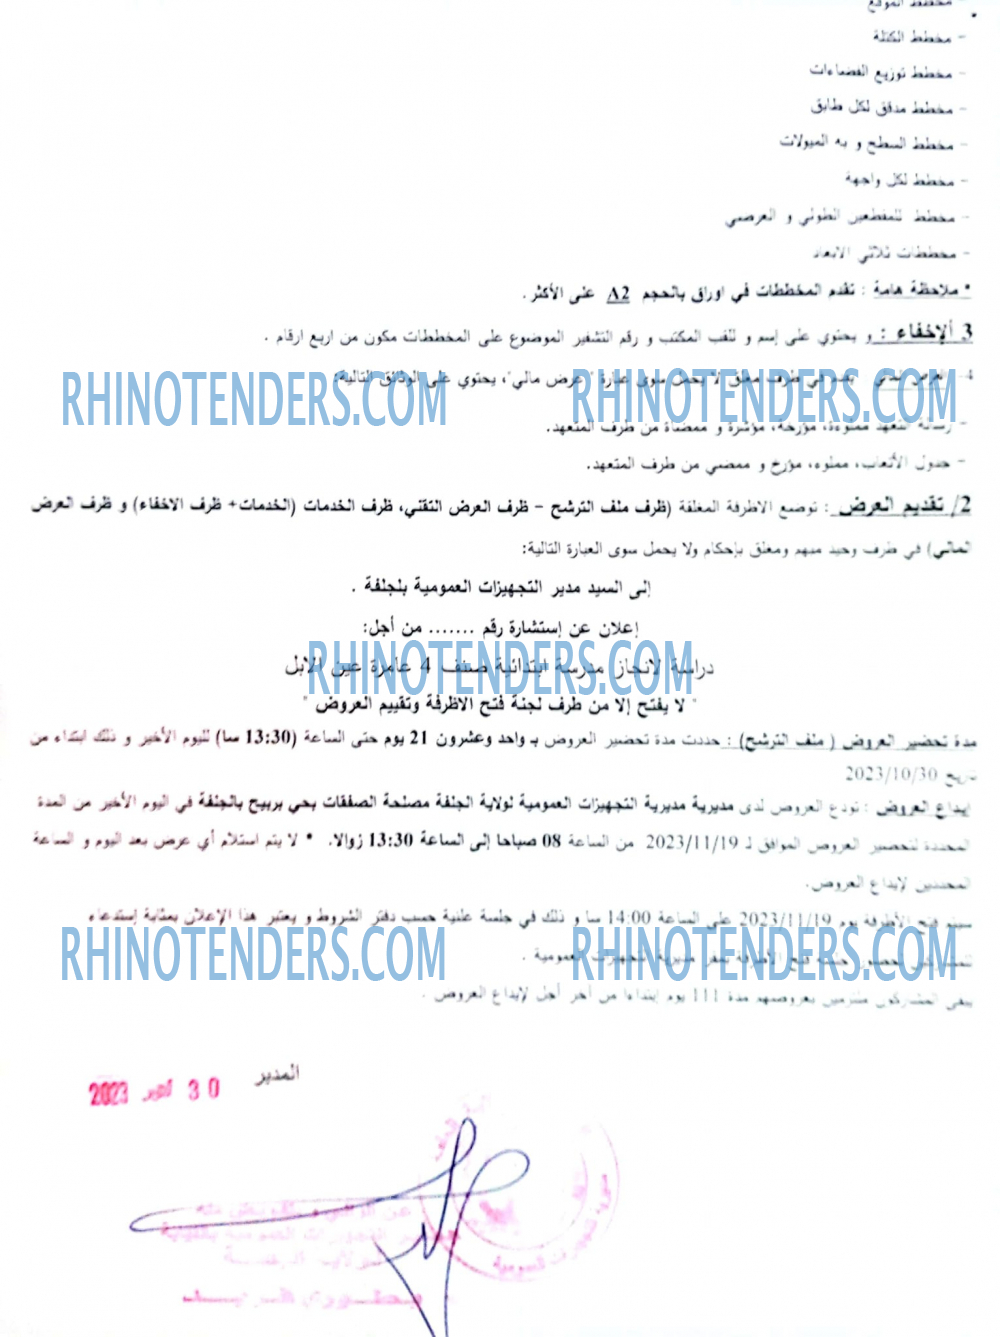 - مخطط الموقع
- مخطط الكتلة
- مخطط توزيع الفضاءات
- مخطط مدقق لكل طابق
- مخطط السطح و به الميولات
- مخطط لكل واجهة
- مخطط للمقطعين الطولي و العرضي
- مخططات ثلاثي الابعاد
* ملاحظة هامة : تقدم المخططات في اوراق بالحجم A2 على الأكثر.
3 الإخفاء : و يحتوي على إسم و للقب المكتب و رقم التشفير الموضوع على المخططات مكون من اربع ارقام .
4- العرض المالي يقدم في ظرف مغلق لا يحمل سوى عبارة "عرض مالي"، يحتوي على الوثائق التالية:
RHINOTENDERS.COM RHINOTENDERS.COM
- رسالة تعهد مملوءة، مؤرخة، مؤشرة و ممضاة من طرف المتعهد.
- جدول الأتعاب، مملوء، مؤرخ و ممضي من طرف المتعهد.
2/ تقديم العرض : توضع الاظرفة المغلقة (ظرف ملف الترشح – ظرف العرض التقني، ظرف الخدمات (الخدمات+ ظرف الاخفاء) و ظرف العرض
المالي) في ظرف وحيد مبهم ومغلق بإحكام ولا يحمل سوى العبارة التالية:
إلى السيد مدير التجهيزات العمومية بلجلفة .
إعلان عن إستشارة رقم ....... من أجل:
دراسة لانجاز مدرسة ابتدائية صنف 4 عامرة عين الابل
RHINOTENDERS.COM
" لا يفتح إلا من طرف لجنة فتح الاظرفة وتقييم العروض "
مدة تحضير العروض ( ملف الترشح) : حددت مدة تحضير العروض بـ واحد وعشرون 21 يوم حتى الساعة (13:30 سا) لليوم الأخير و ذلك ابتداء من
تاريخ 2023/10/30
إيداع العروض : تودع العروض لدى مديرية مديرية التجهيزات العمومية لولاية الجلفة مصلحة الصفقات بحي بربيح بالجلفة في اليوم الأخير من المدة
المحددة لتحضير العروض الموافق لـ 2023/11/19 من الساعة 08 صباحا إلى الساعة 13:30 زوالا. * لا يتم استلام أي عرض بعد اليوم و الساعة
المحددين لإيداع العروض.
سيتم فتح الأظرفة يوم 2023/11/19 على الساعة 14:00 سا و ذلك في جلسة علنية حسب دفتر الشروط و يعتبر هذا الإعلان بمثابة إستدعاء
للمشاركين لحضور جلسة فتح الاظرفة بمقر مديرية التجهيزات العمومية .
RHINOTENDERS.COM RHINOTENDERS.COM
يبقى المشاركون ملتزمين بعروضهم مدة 111 يوم إبتداءا من أخر أجل لإيداع العروض .
المدير
30 أكتوبر 2023